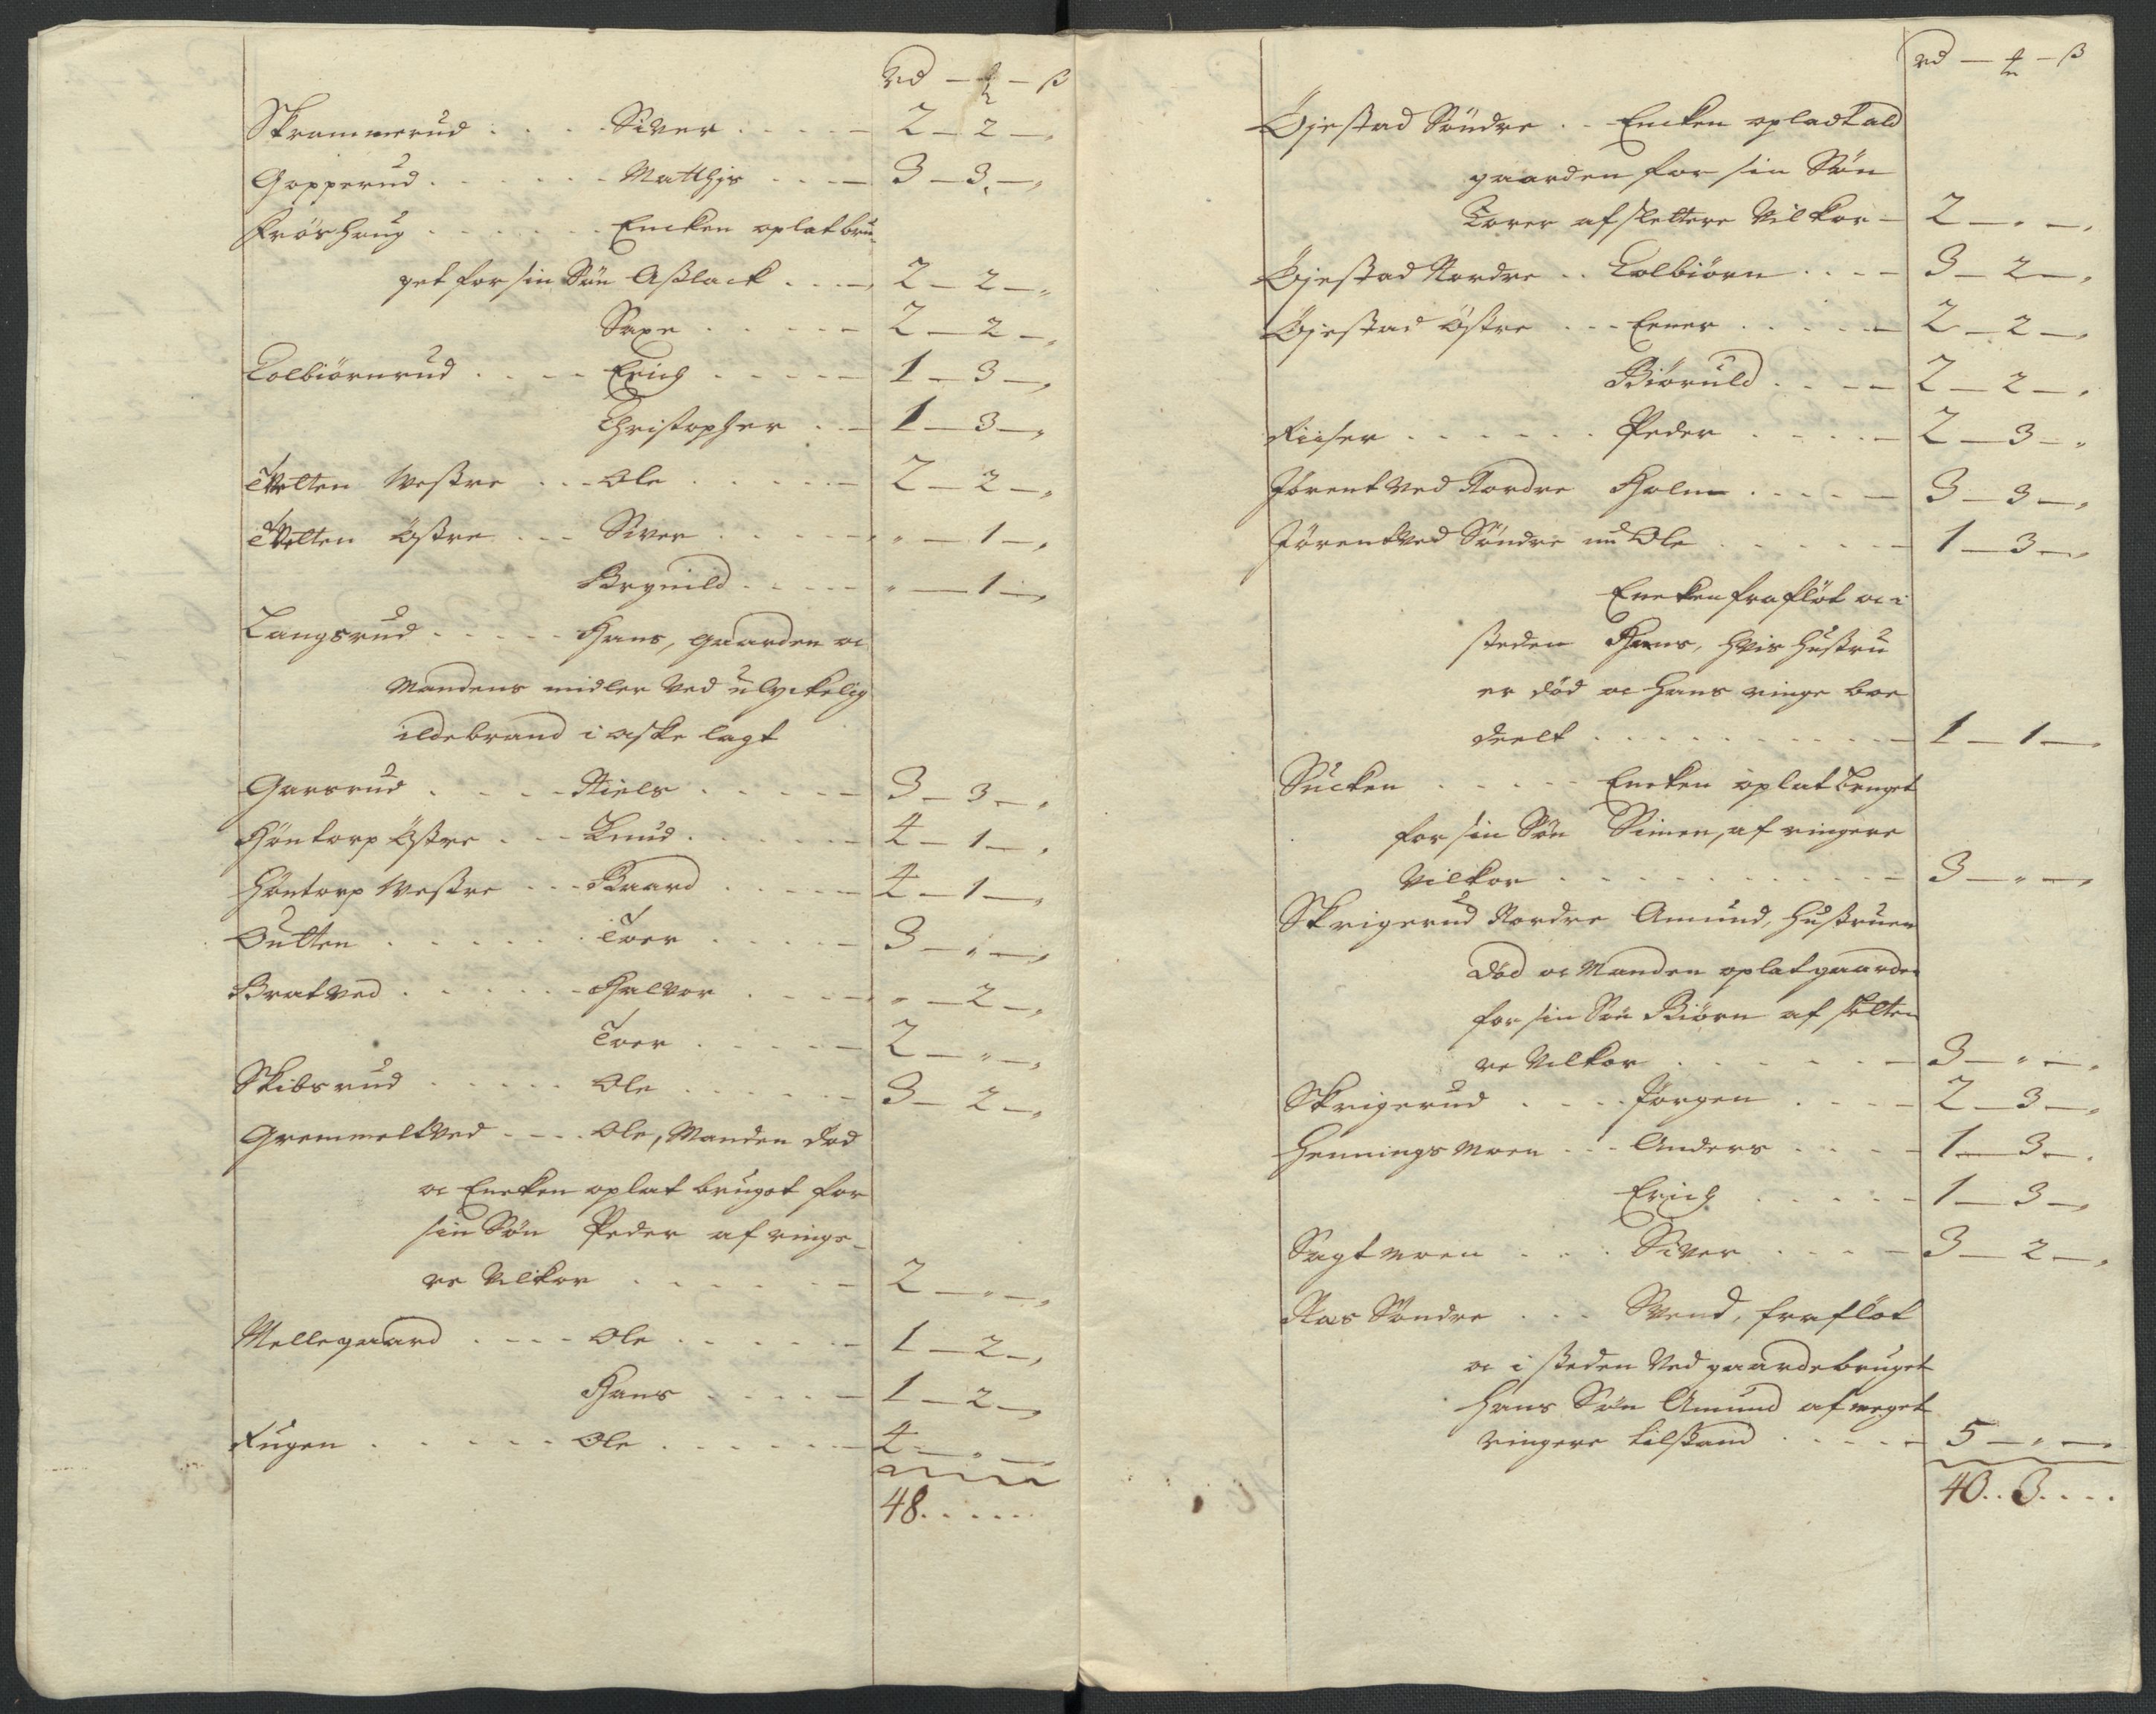 Rd — ₰ — ß
Skrammerud . . . . Siver . . . . — 2 — 2 — „
Gopperud . . . . . . Matthjs . . . — 3 — 3 — „
Fröshoug . . . . . . Encken oplat bru-
get for sin Sön Aslack . . . — 2 — 2 — „
Saxe . . . . . — 2 — 2 — „
Tolbiörnrud . . . . Erich . . . . . — 1 — 3 — „
Christopher . . — 1 — 3 — „
Tvetten Westre . . . Ole . . . . . . — 2 — 2 — „
Tvetten östre . . . Siver . . . . . — „ — 1 — „
Brynild . . . . . „ — 1 — „
Langsrud . . . . . Hans, gaarden oc
Mandens midler ved ulyckelig
ildebrand i aske lagt
Garsrud . . . . Niels . . . . . — 3 — 3 — „
Höntorp östre . . . Knud . . . . . — 4 — 1 — „
Höntorp Westre . . . Baard . . . . . — 4 — 1 — „
Dutten . . . . . . . Toer . . . . . — 3 — „ — „
Bratved . . . . . . Halvor . . . . — „ — 2 — „
Toer . . . . . — 2 — „ — „
Skibsrud . . . . . Ole . . . . . . — 3 — 2 — „
Gremmeltved . . . . Ole, Manden död
oc Encken oplat bruget for
sin Sön Peder af ringe-
re Vilkor . . . . . . — 2 — „ — „
Mellegaard . . . . Ole . . . . . . — 1 — 2 — „
Hans . . . . . — 1 — 2 — „
Fugen . . . . . . Ole . . . . . . — 4 — „ —
48 . . . . . .
Rd — ₰ — ß
Öjestad Söndre . . Encken opladt ald
gaarden for sin Sön
Torer af slettere Vilkor — 2 — „ — „
Öjestad Nordre . . Tolbiörn . . . — 3 — 2 — „
Öjestad östre . . . Einer . . . . . — 2 — 2 — „
Biöruld . . . . — 2 — 2 — „
Riiser . . . . . . . Peder . . . . — 2 — 3 — „
Jörentved Nordre Holm . . . . — 3 — 3 — „
Jörentved Söndre nu Ole . . . . . — 1 — 3 — „
Encken fraflöt oc i
steden Hans, hvis hustru
er död oc hans ringe boe
deelt . . . . . . . . . . . — 1 — 1 — „
Sucken . . . . . Encken oplat bruget
for sin Sön Simen, af ringere
Vilkor . . . . . . . . . . . — 3 — „ — „
Skrigerud Nordre Amund, Hustruen
död oc Manden oplat gaarden
for sin Sön Biörn af slette
re Vilkor . . . . . . — 3 — „ — „
Skrigerud . . . . Jörgen . . . . — 2 — 3 — „
Hennings moen . . . Anders . . . . — 1 — 3 — „
Erich . . . . . — 1 — 3 — „
Sagtmoen . . . . Siver . . . . — 3 — 2 — „
Aas Söndre . . . Svend, fraflöt
oc i steden ved gaardebruget
hans Sön Amund af meget
ringere tilstand . . . . . — 5 — „ — „
40 . . 3 . . . .